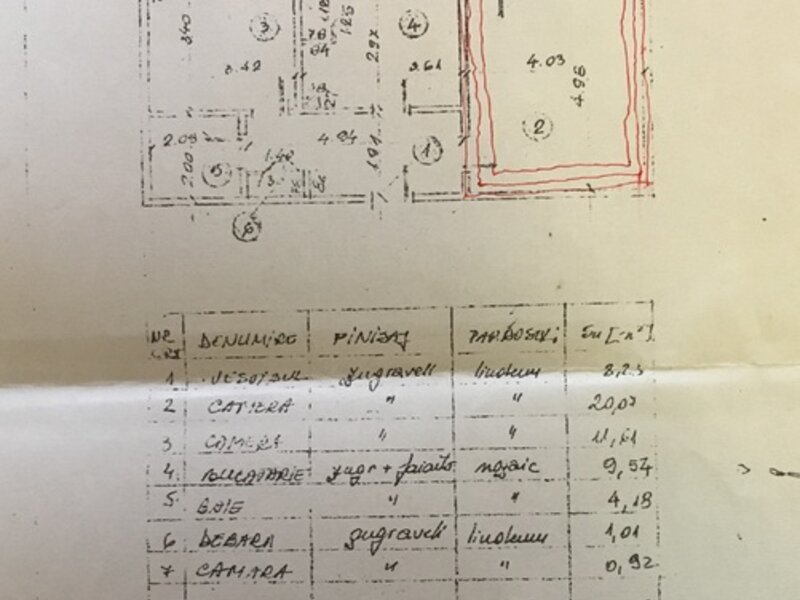 340
3
3.42
125
297
4
3.61
4.03
4.98
2
2.09
2.00
5
4.94
1.91
1
6
NR
CRT DENUMIRE FINISAJ PARDOSELI Su [m²]
1 VESTIBUL zugraveli linoleum 8,23
2 CAMERA " " 20,07
3 CAMERA " " 11,61
4 BUCATARIE zugr + faianta mozaic 9,54
5 BAIE " " 4,18
6 DEBARA zugraveli linoleum 1,01
7 CAMARA " " 0,92